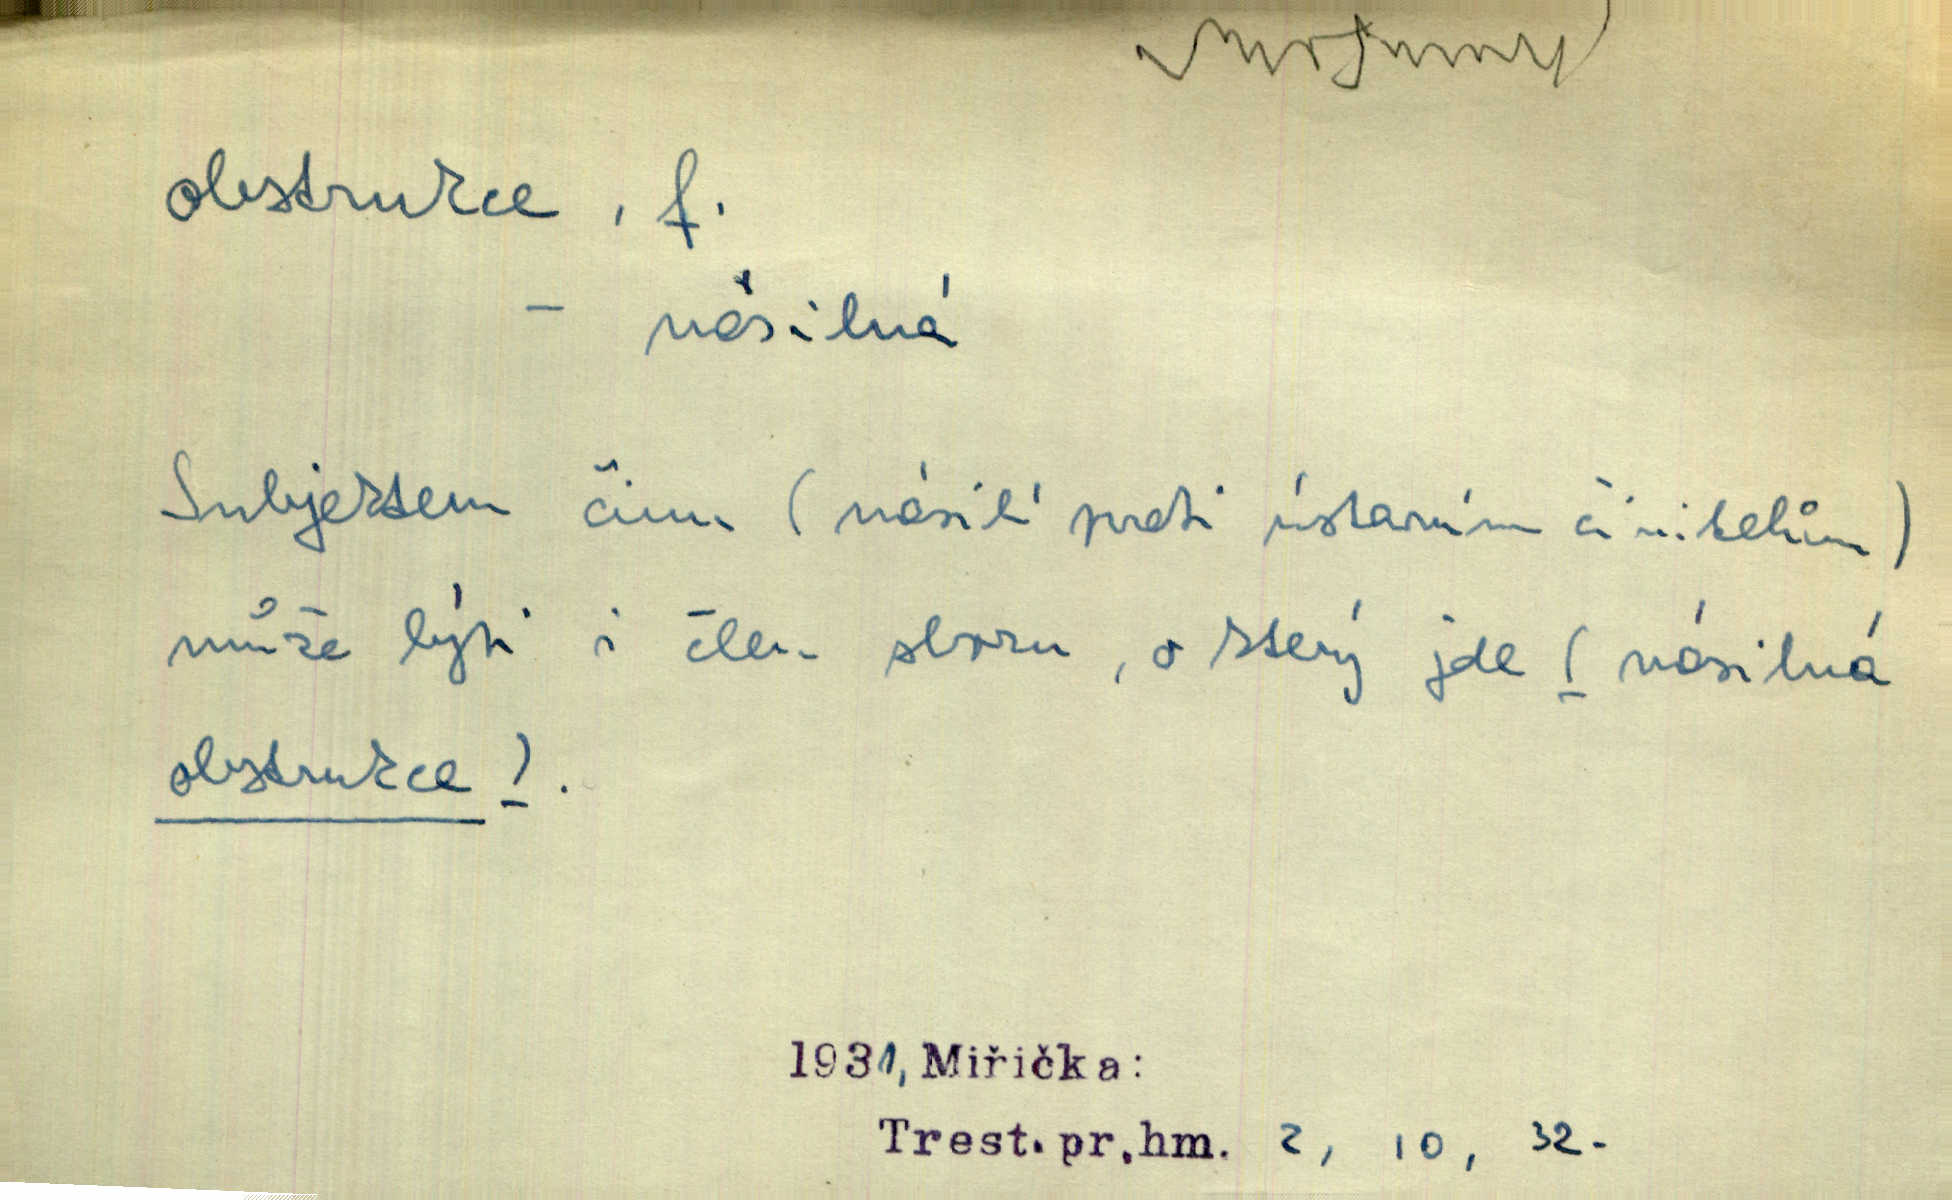 obstrukce, f.
– násilná
Subjektem činu (násilí proti ústavním činitelům)
může býti i člen sboru, o který jde (násilná
obstrukce).
1931, Miřička:
Trest. pr. hm. 2, 10, 32-